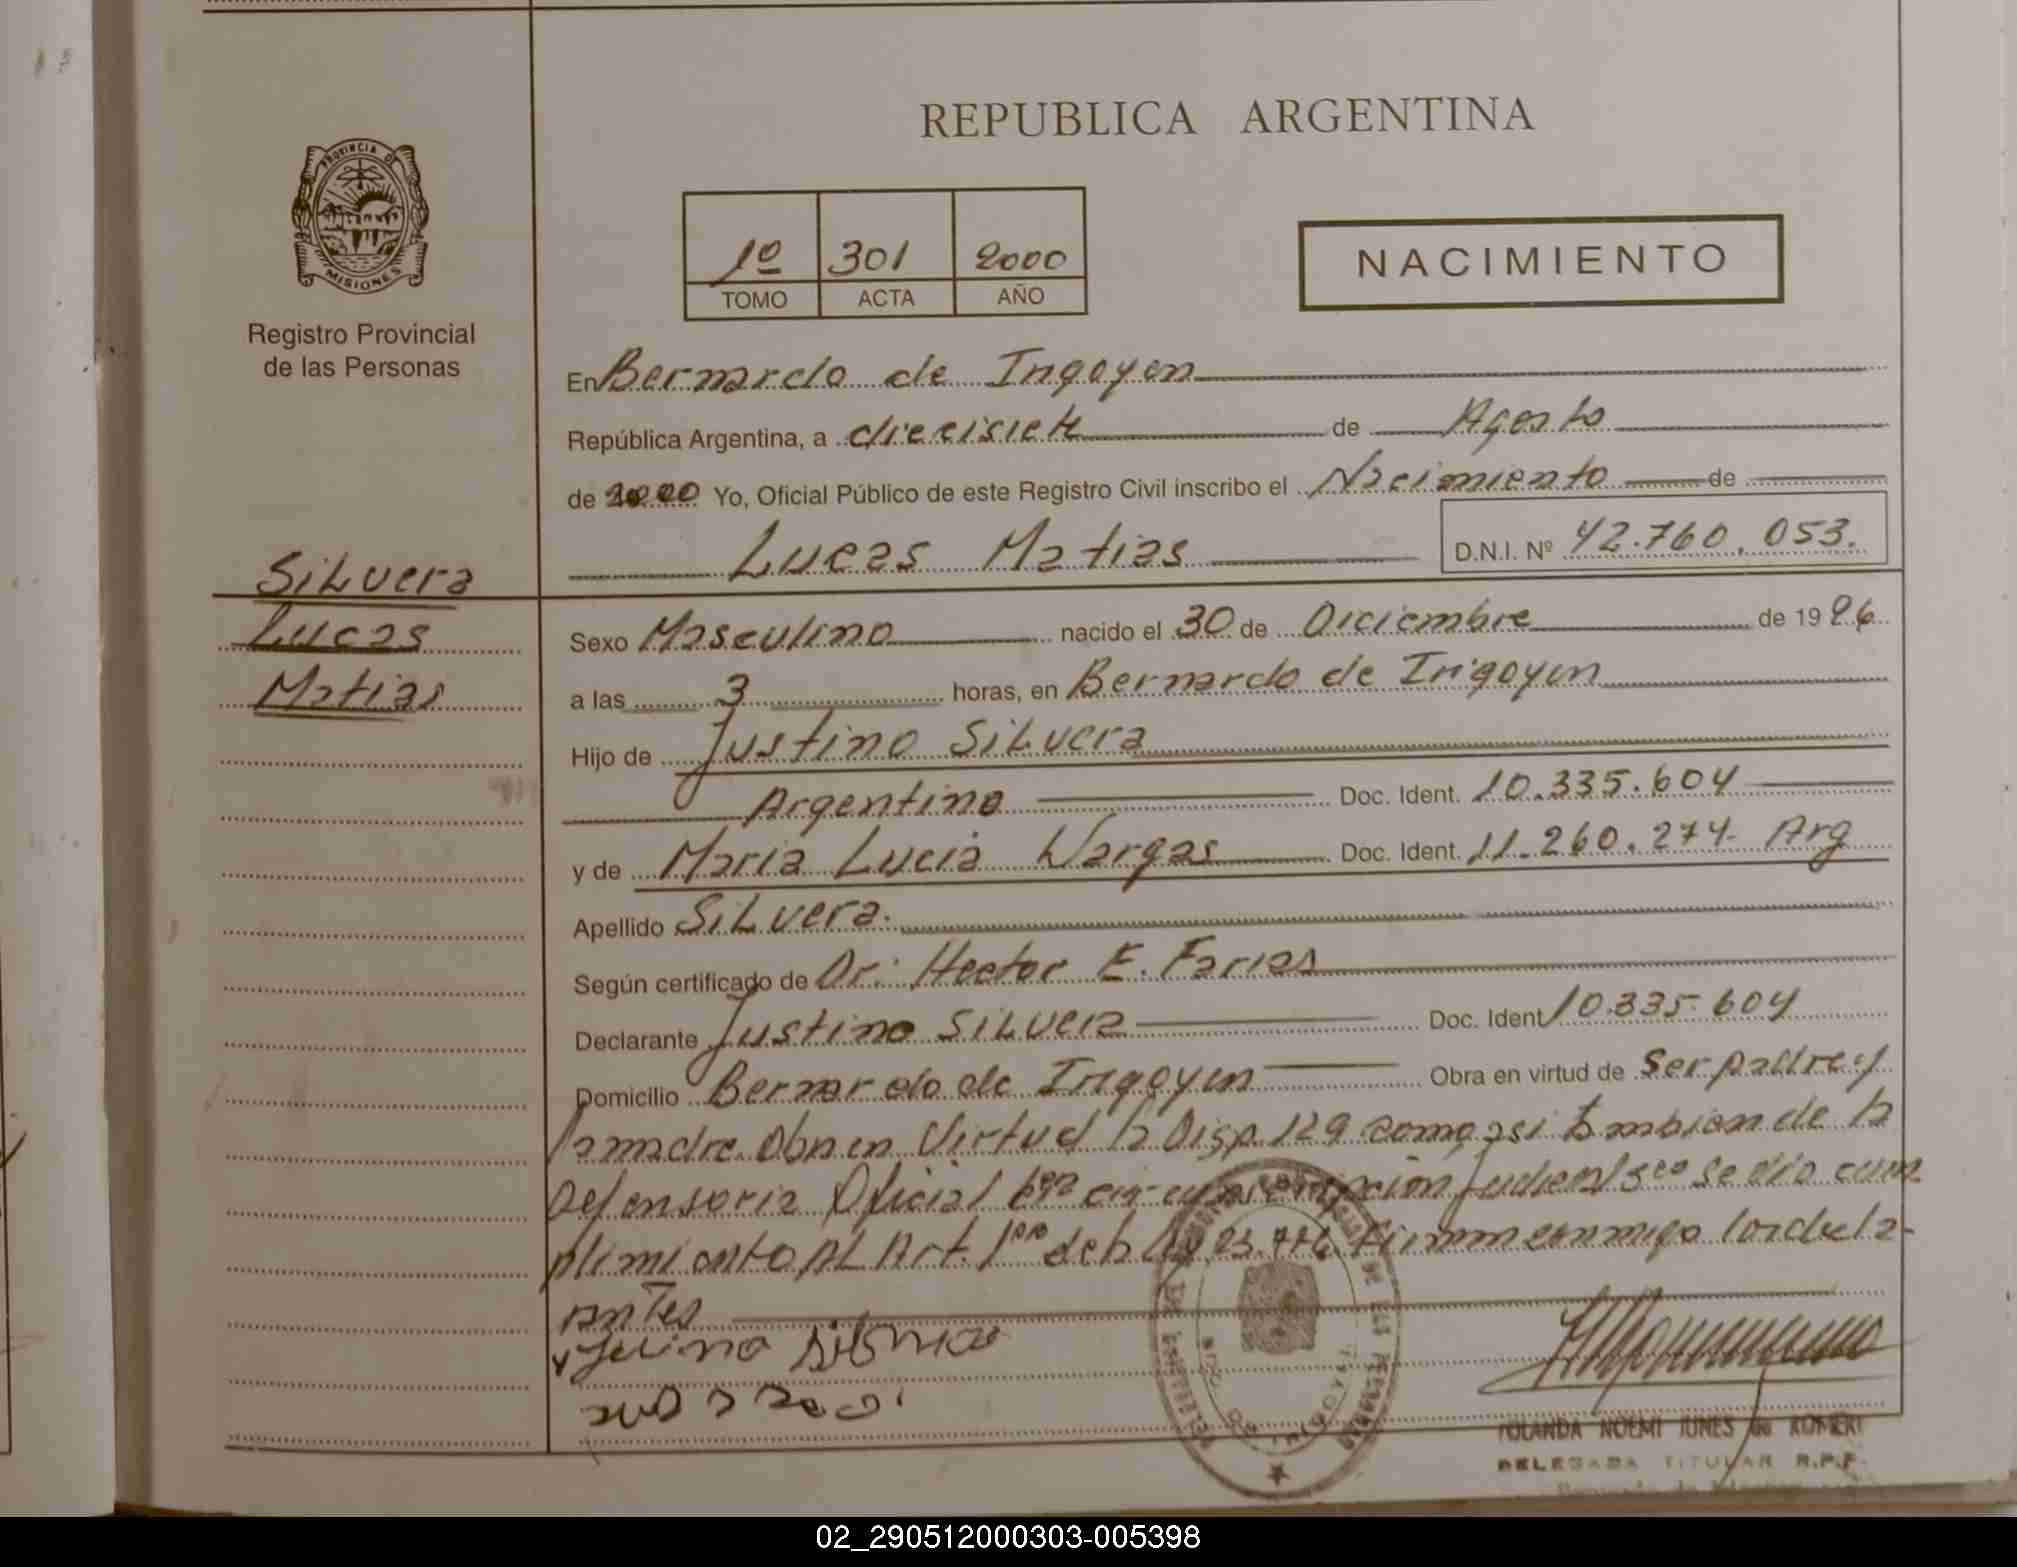 REPUBLICA ARGENTINA
PROVINCIA DE
MISIONES
Registro Provincial
de las Personas
1º 301 2000
TOMO ACTA AÑO
NACIMIENTO
En Bernardo de Irigoyen
República Argentina, a diecisiete de Agosto
de 2000 Yo, Oficial Público de este Registro Civil inscribo el Nacimiento de
Lucas Matias D.N.I. Nº 42.760.053.
Silvera
Lucas
Matias
Sexo Masculino nacido el 30 de Diciembre de 1996
a las 3 horas, en Bernardo de Irigoyen
Hijo de Justino Silvera
Argentino Doc. Ident. 10.335.604
y de Maria Lucia Vargas Doc. Ident. 11.260.274 Arg
Apellido Silvera.
Según certificado de Dr. Hector E. Farias
Declarante Justino Silvera Doc. Ident 10.335.604
Domicilio Bernardo de Irigoyen Obra en virtud de Ser padre y
la madre. Obra en Virtud la Disp. 129 como asi tambien de la
Defensoria Oficial circunscripción Judicial se dio cum
plimiento AL Art. 1ro de la Ley Firman conmigo los decla-
rantes
YOLANDA NOEMI JUNES de ROMERI
DELEGADA TITULAR R.P.P.
02_290512000303-005398